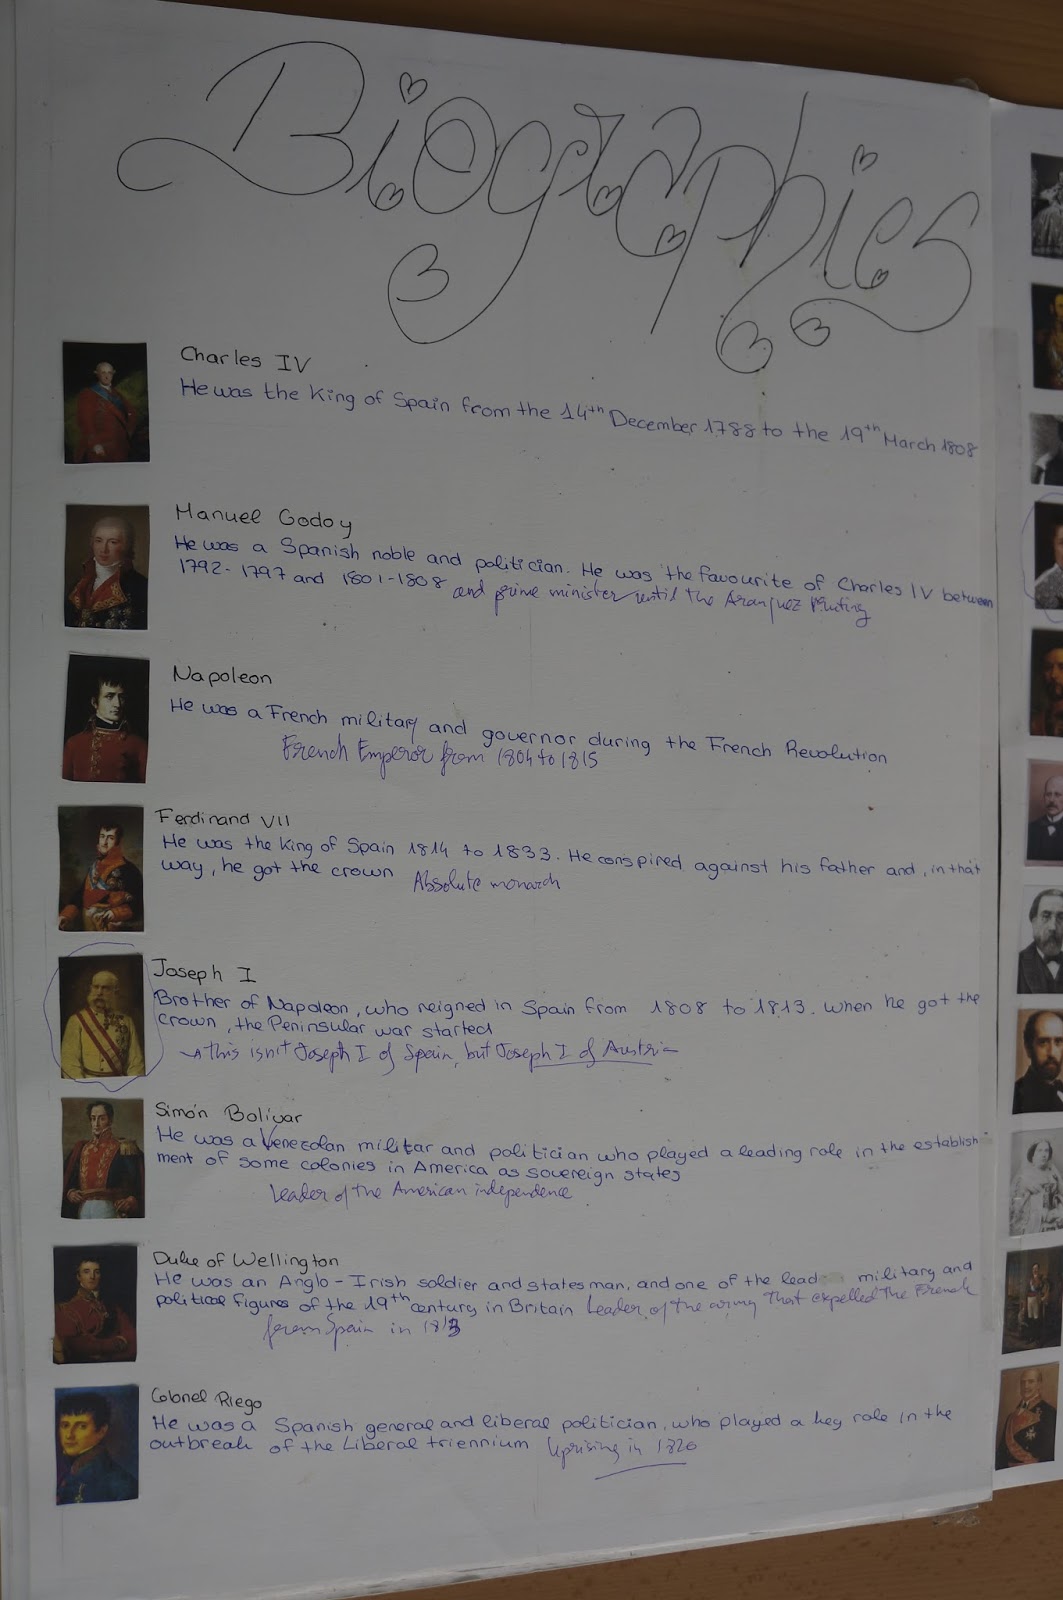 Biographies
Charles IV
He was the King of Spain from the 14th December 1788 to the 19th March 1808
Manuel Godoy
He was a Spanish noble and politician. He was the favourite of Charles IV between
1792-1797 and 1801-1808 and prime minister until the Aranjuez Mutiny
Napoleon
He was a French military and governor during the French Revolution
French Emperor from 1804 to 1815
Ferdinand VII
He was the King of Spain 1814 to 1833. He conspired against his father and, in that
way, he got the crown Absolute monarch
Joseph I
Brother of Napoleon, who reigned in Spain from 1808 to 1813. When he got the
crown, the Peninsular war started
→ This isn't Joseph I of Spain, but Joseph I of Austria
Simón Bolívar
He was a Venezolan militar and politician who played a leading role in the establish
ment of some colonies in America as sovereign states
Leader of the American independence
Duke of Wellington
He was an Anglo-Irish soldier and statesman, and one of the lead military and
political figures of the 19th century in Britain Leader of the army that expelled the French
from Spain in 1813
Colonel Riego
He was a Spanish general and liberal politician, who played a key role in the
outbreak of the Liberal triennium Uprising in 1820